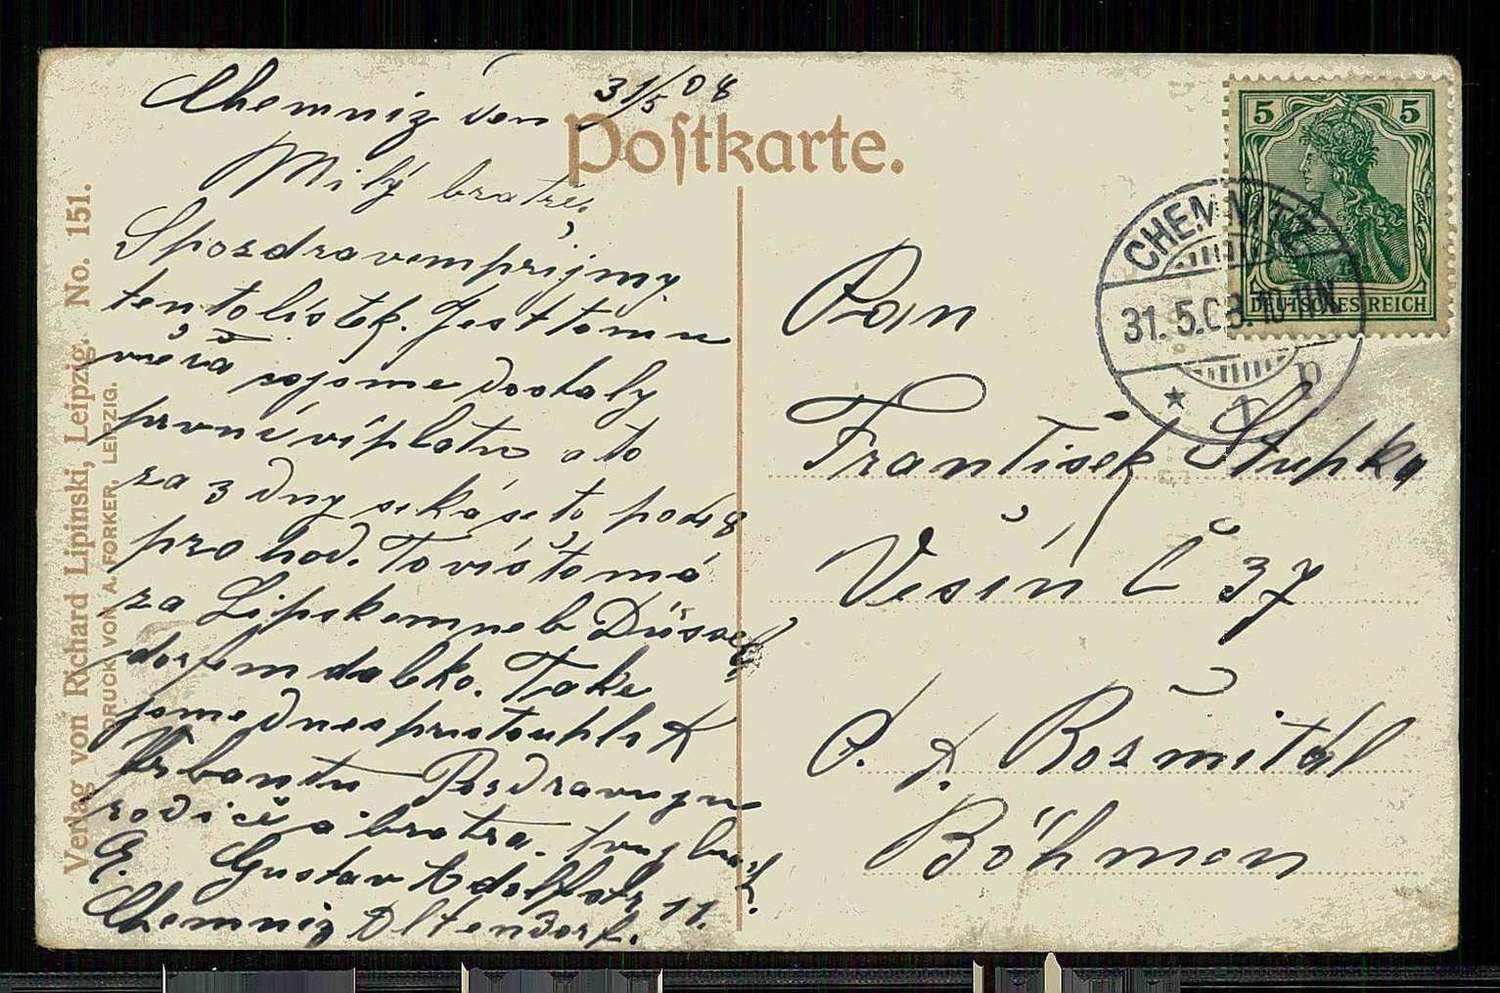 Chemniz den 31/5 08
Postkarte.
Milý bratře,
S pozdravem přijmy
tento lístek. Jest tomu
včera co jsme dostaly
první víplatu a to
za 3 dny
pro hod. To víš to má
za Lipskem neb Düssel
dorfem dalko. Take
jsme dnes pristoupli K
Pozdravuj
rodiče a bratra. tvuj bratr
E. Gustav Adolfstr. 11.
Chemniz Altendorf.
Verlag von Richard Lipinski, Leipzig. No. 151.
DRUCK VON A. FORKER, LEIPZIG.
5 5
DEUTSCHES REICH
CHEMNITZ
31.5.08.10-11N
Pan
František Stupka
Vešín Č 37
P. Rozmitál
Böhmen